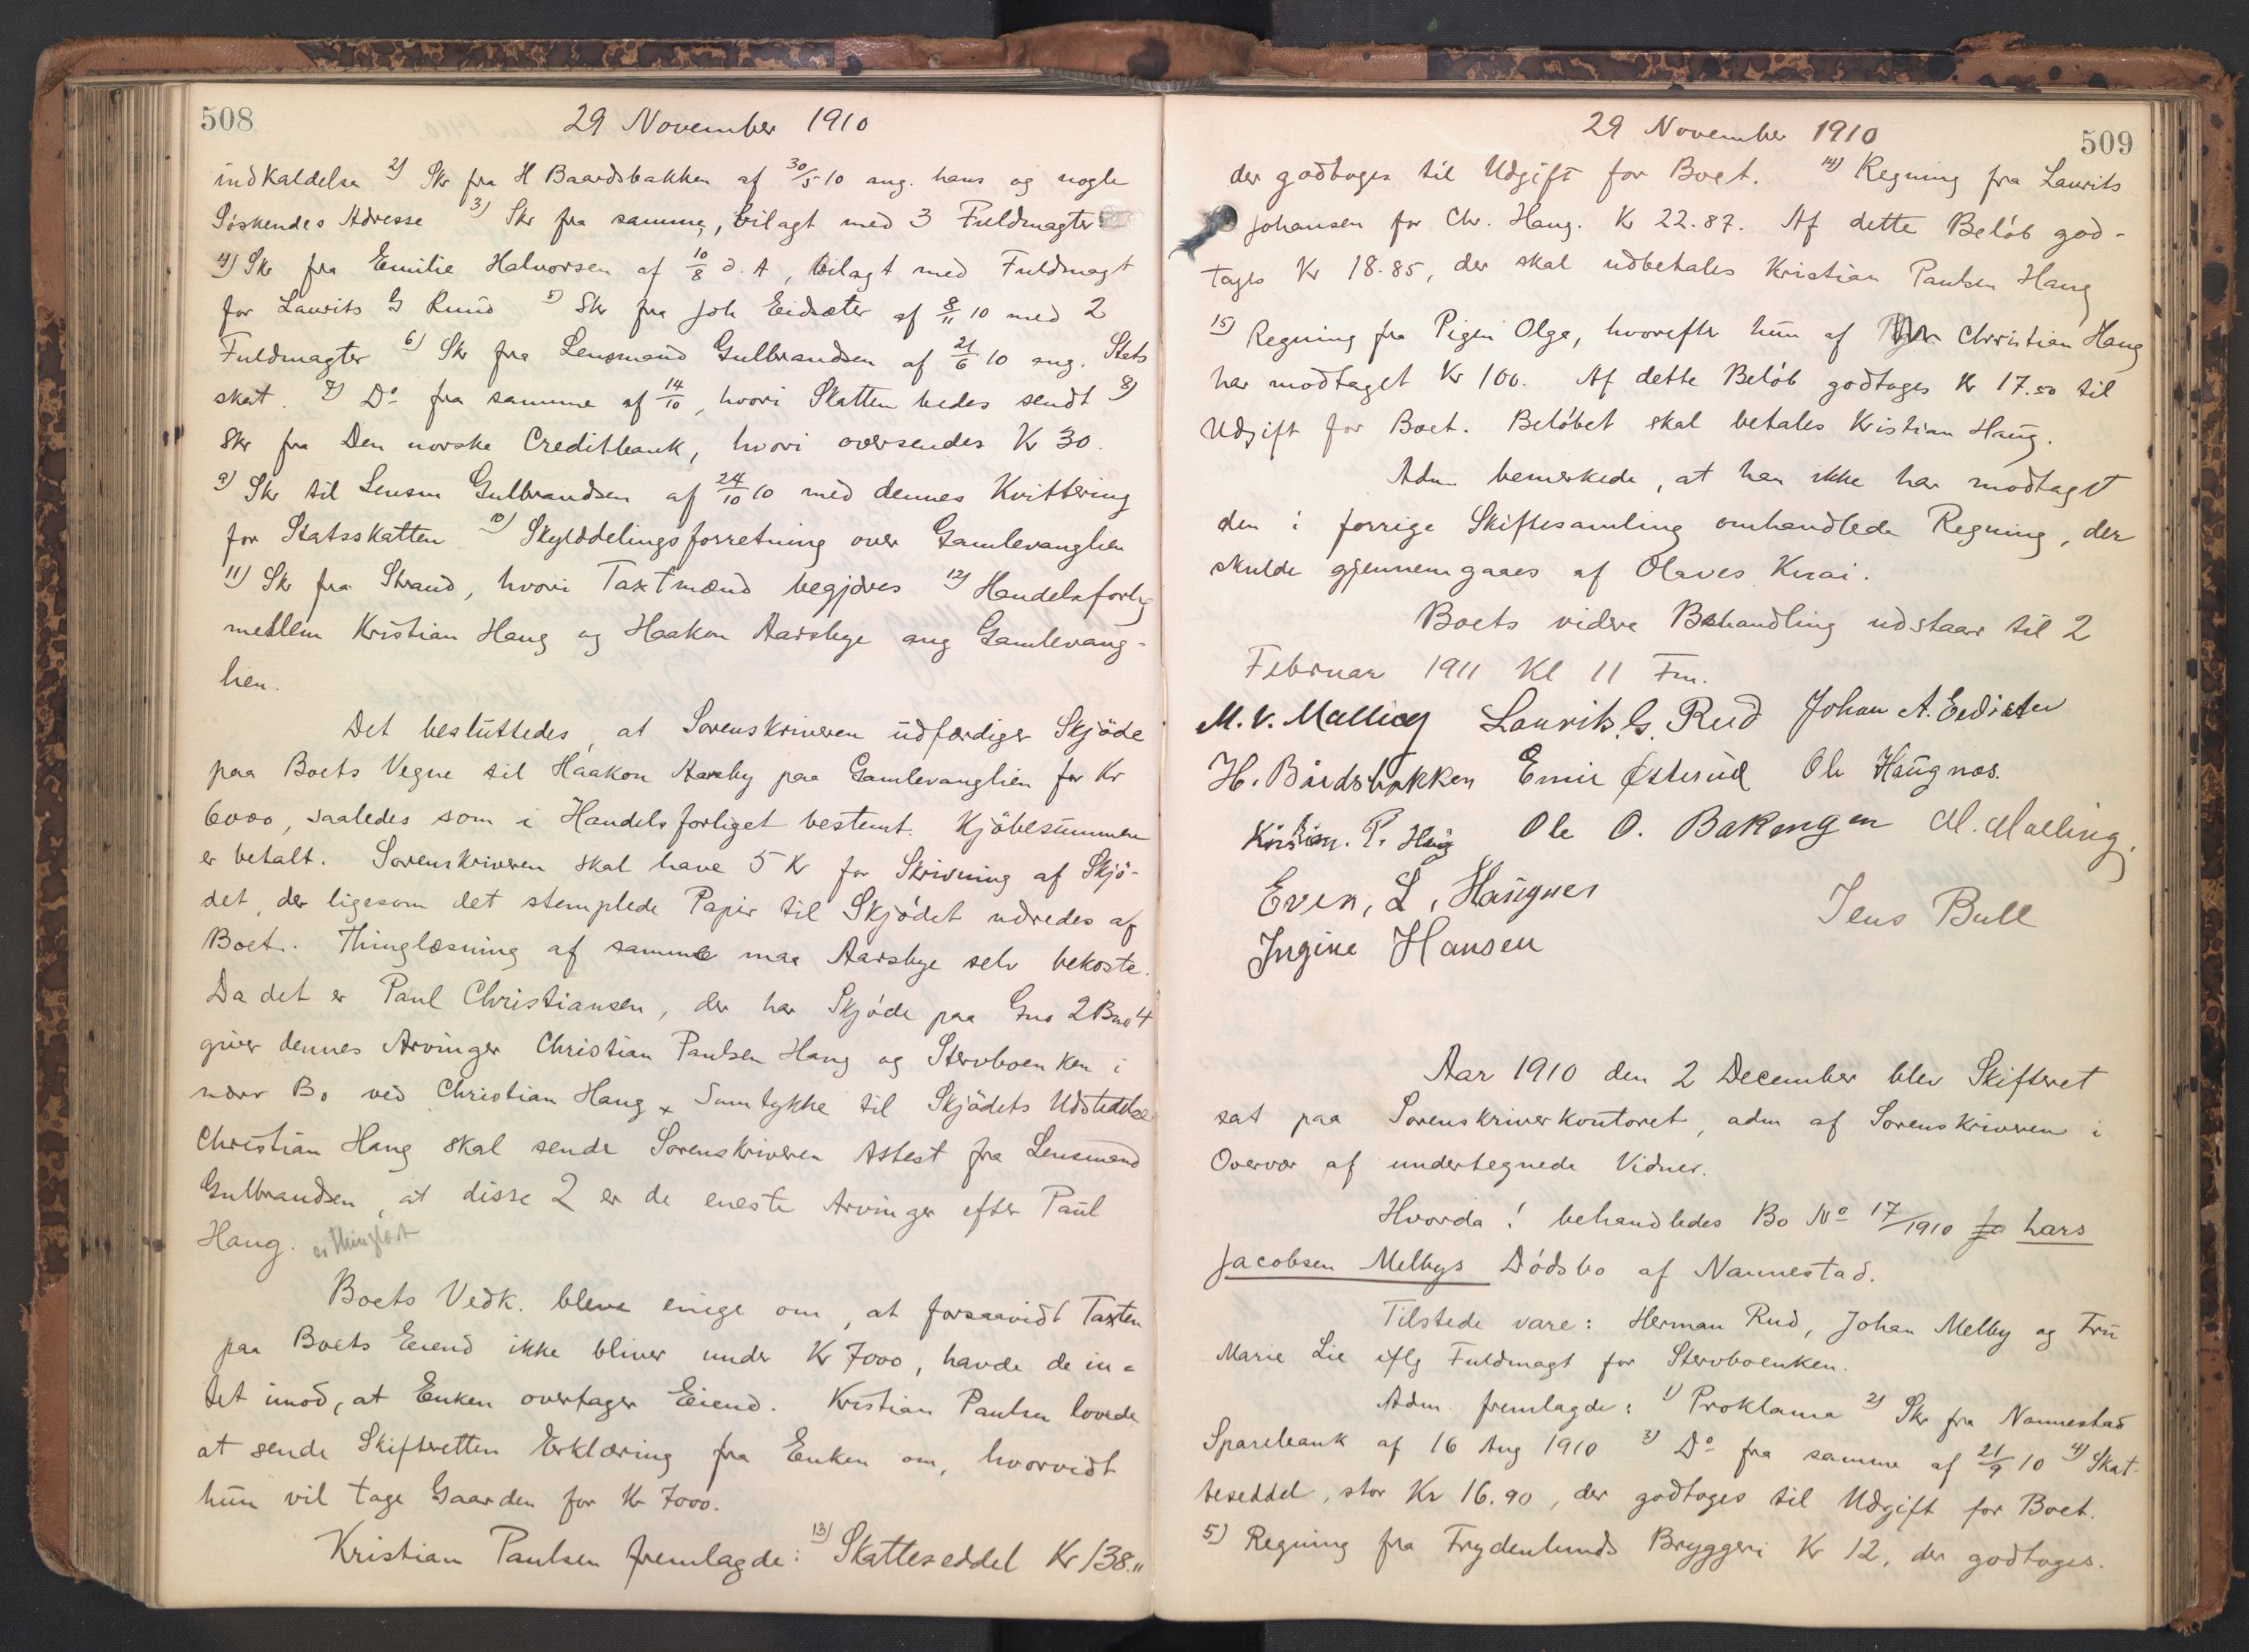 508
29 November 1910
indkaldelse 2) Skr fra H Baardsbakken af 30/5 10 ang. hans og nogle
Søskendes Adresse 3) Skr fra samme, bilagt med 3 Fuldmagter
4) Skr fra Emilie Halvorsen af 10/8 d. A, bilagt med Fuldmagt
for Laurits G Ruud 5) Skr fra Joh Eidsæter af 8/11 10 med 2
Fuldmagter 6) Skr fra Lensmand Gulbrandsen af 21/6 10 ang. Stats
skat. 7) Do fra samme af 14/10, hvori Skatten bedes sendt 8)
Skr fra Den norske Creditbank, hvori oversendes Kr 30.
9) Skr til Lensm Gulbrandsen af 24/10 10 med dennes Kvittering
for Statsskatten 10) Skylddelingsforretning over Gamlevanglien
11) Skr fra Strand, hvori Taxtmænd begjæres 12) Handelsforlig
mellem Kristian Haug og Haakon Aarsbye ang Gamlevang-
lien.
Det besluttedes, at Sorenskriveren udfærdiger Skjöde
paa Boets Vegne til Haakon Aarsby paa Gamlevanglien for Kr
6000, saaledes som i Handelsforliget bestemt. Kjöbesummen
er betalt. Sorenskriveren skal have 5 Kr for Skrivning af Skjö-
det, der ligesom det stemplede Papir til Skjödet udredes af
Boet. Thinglæsning af samme maa Aarsbye selv bekoste.
Da det er Paul Christiansen, der har Skjöde paa Gno 2 Bno 4
giver dennes Arvinger Christian Paulsen Haug og Stervboenken i
nærv Bo ved Christian Haug x Samtykke til Skjödets Udstedelse
Christian Haug skal sende Sorenskriveren Attest fra Lensmand
Gulbrandsen, at disse 2 er de eneste Arvinger efter Paul
Haug. er thinglæst
Boets Vedk. bleve enige om, at forsaavidt Taxten
paa Boets Eiend ikke bliver under Kr 7000, havde de in-
tet imod, at Enken overtager Eiend. Kristian Paulsen lovede
at sende Skifteretten Erklæring fra Enken om, hvorvidt
hun vil tage Gaarden for Kr 7000.
Kristian Paulsen fremlagde: 13) Skatteseddel Kr 138."
29 November 1910
509
der godtoges til Udgift for Boet. 14) Regning fra Laurits
Johansen for Chr. Haug. Kr 22.87. Af dette Beløb god-
tages Kr 18.85, der skal udbetales Kristian Paulsen Haug
15) Regning fra Pigen Olga, hvorefter hun af Christian Haug
har modtaget Kr 100. Af dette Beløb godtoges Kr 17.50 til
Udgift for Boet. Beløbet skal betales Kristian Haug.
Adm bemerkede, at han ikke har modtaget
den i forrige Skiftesamling omhandlede Regning, der
skulde gjennemgaaes af Olaves
Boets videre Behandling udstaar til 2
Februar 1911 Kl 11 Fm.
M. V. Malling Laurits. G. Rud Johan A. Eedsæter
H. Bårdsbakken Emil Østerud Ole Haugnæs.
Kristian. P. Haug Ole O. Bakengen M. Malling.
Even, L, Haugnes
Jens Bull
Ingine Hansen
Aar 1910 den 2 December blev Skifteret
sat paa Sorenskriverkontoret, adm af Sorenskriveren i
Overvær af undertegnede Vidner.
Hvorda! behandledes Bo No 17/1910 Ja Lars
Jacobsen Melbys Dødsbo af Nannestad.
Tilstede vare: Herman Rud, Johan Melby og Fru
Marie Lie iflg Fuldmagt for Stervboenken.
Adm. fremlagde: 1) Proklama 2) Skr fra Nannestad
Sparebank af 16 Aug 1910 3) Do fra samme af 21/9 10 4) Skat-
teseddel, stor Kr 16.90, der godtoges til Udgift for Boet.
5) Regning fra Frydenlunds Bryggeri Kr 12, der godtoges.